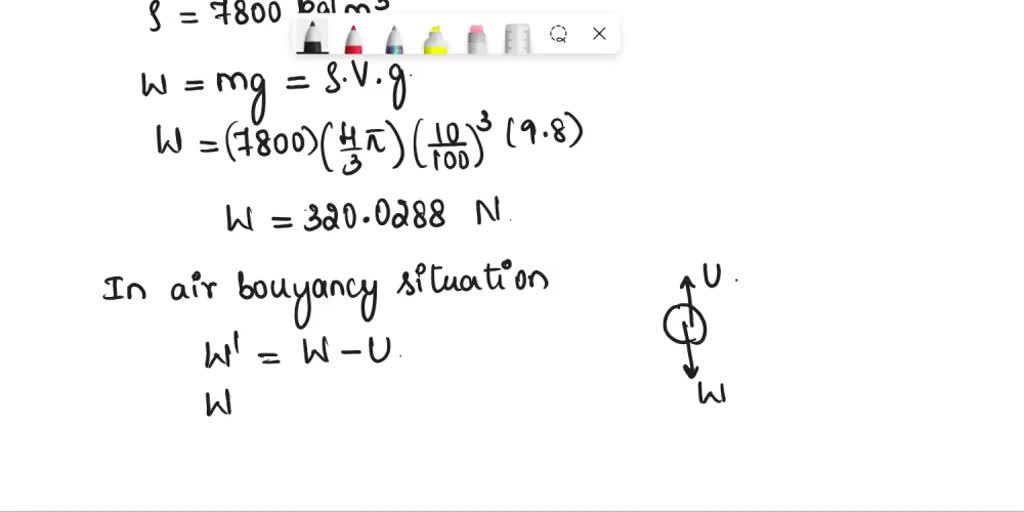 ρ = 7800
W = mg = ρ.V.g
W = (7800)(4/3 π)(10/100)³ (9.8)
W = 320.0288 N.
In air bouyancy situation
U.
W' = W - U.
W
W